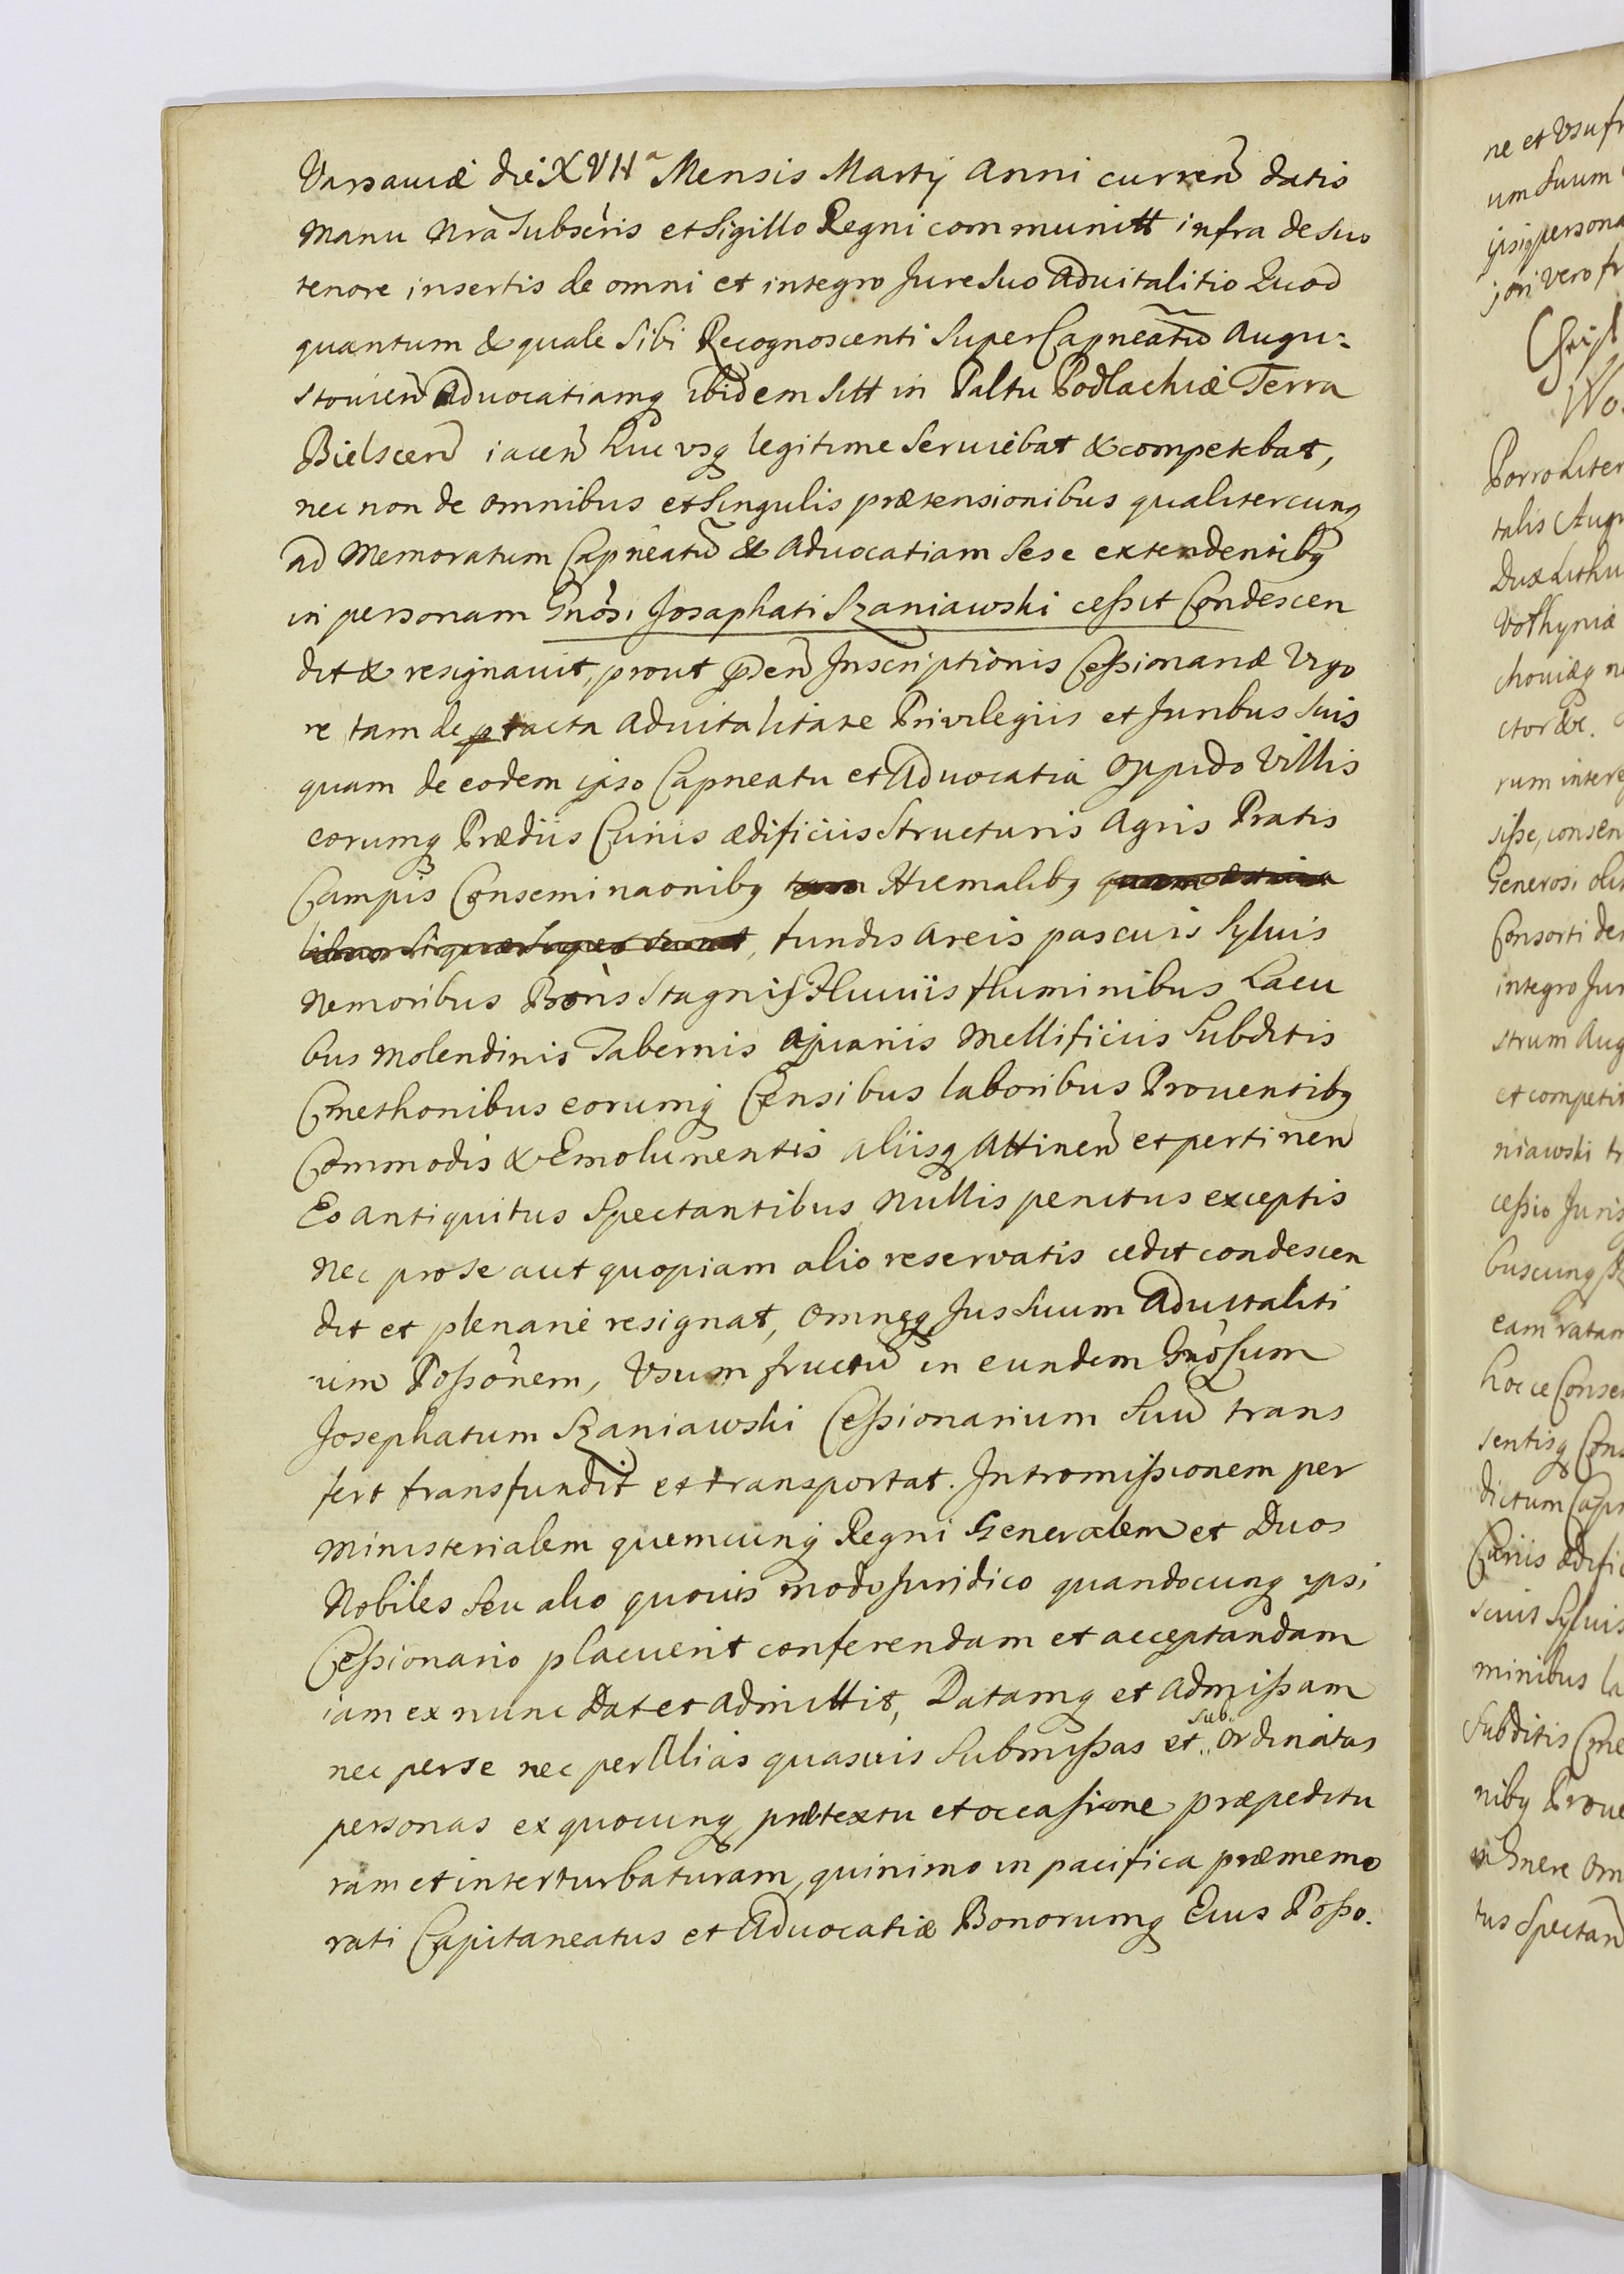 Varsauiæ die XVIIa Mensis Martij Anni curren̄ datis
manu nr̄a Subscris et Sigillo Regni communitt infra de suo
tenore insertis de omni et integro Jure Suo Aduitalitio Quod
quantum & quale Sibi Recognoscenti Super Capneatū Augu-
stouien̄ Aduocatiamq ibidem Sitt in Paltu Podlachiæ Terra
Bielscen̄ iacen̄ huc vsq legitime Seruiebat & competebat,
nec non de omnibus et Singulis prætensionibus qualitercunq
ad Memoratum Capneatū & Aduocatiam Sese extendentibq
in personam Gnosi Josaphati Szaniawski cessit Condescen
dit & resignauit, prout pden̄ Inscriptionis Cessionariæ Vigo
re tam de ptacta Aduitalitate Privilegiis et Juribus Suis
quam de eodem ipso Capneatu et Aduocatia Oppido Villis
eorumq Prædiis Curiis ædificiis Structuris Agris Pratis
Campis Conseminaonibq tam Hiemalibq quam æstiua
libus Si quæ Super sunt, fundis areis pascuis Syluis
Nemoribus Boris Stagnis Fluuiis fluminibus Lacu
bus Molendinis Tabernis Apiariis Mellificiis Subditis
Cmethonibus eorumq Censibus laboribus Prouentibq
Commodis & Emolumentis aliisq Attinen̄ et pertinen̄
Eo antiquitus Spectantibus Nullis penitus exceptis
Nec pro se aut quopiam alio reservatis cedit condescen
dit et plenarie resignat, Omneq Jus Suum Aduitaliti
um Possonem, Vsum fructū in eundem Gnosum
Josephatum Szaniawski Cessionarium Suū trans
fert transfundit et transportat. Intromissionem per
Ministerialem quemcunq Regni Generalem et Duos
Nobiles Seu alio quouis modo Juridico quandocunq ipsi
Cessionario placuerit conferendam et acceptandam
iam ex nunc Dat et Admittit, Datamq et Admissam
nec per se nec per Alias quasuis Submissas et Sub ordinatas
personas ex quocunq prætextu et occasione præpeditu
ram et interturbaturam, quinimo in pacifica præmemo
rati Capitaneatus et Aduocatiæ Bonorumq Eius Posso.
ne et Vsufr
um Suum
ipsiq persona
jori vero fr
Christ
Wo
Porro Liter
talis Aug
Dux Lithu
Volhyniæ
chouiæq n
ctor &c.
rum intere
sisse, consen
Generosi oli
Consorti de
integro Jur
strum Aug
et competit
niawski tr
cessio Juris
buscunq
eam ratam
hocce Conse
sentisq Cons
dictum Capn
Curiis ædific
scuis Syluis
minibus la
Subditis Cme
nibq Proue
in Gnere Om
tus Spectan̄